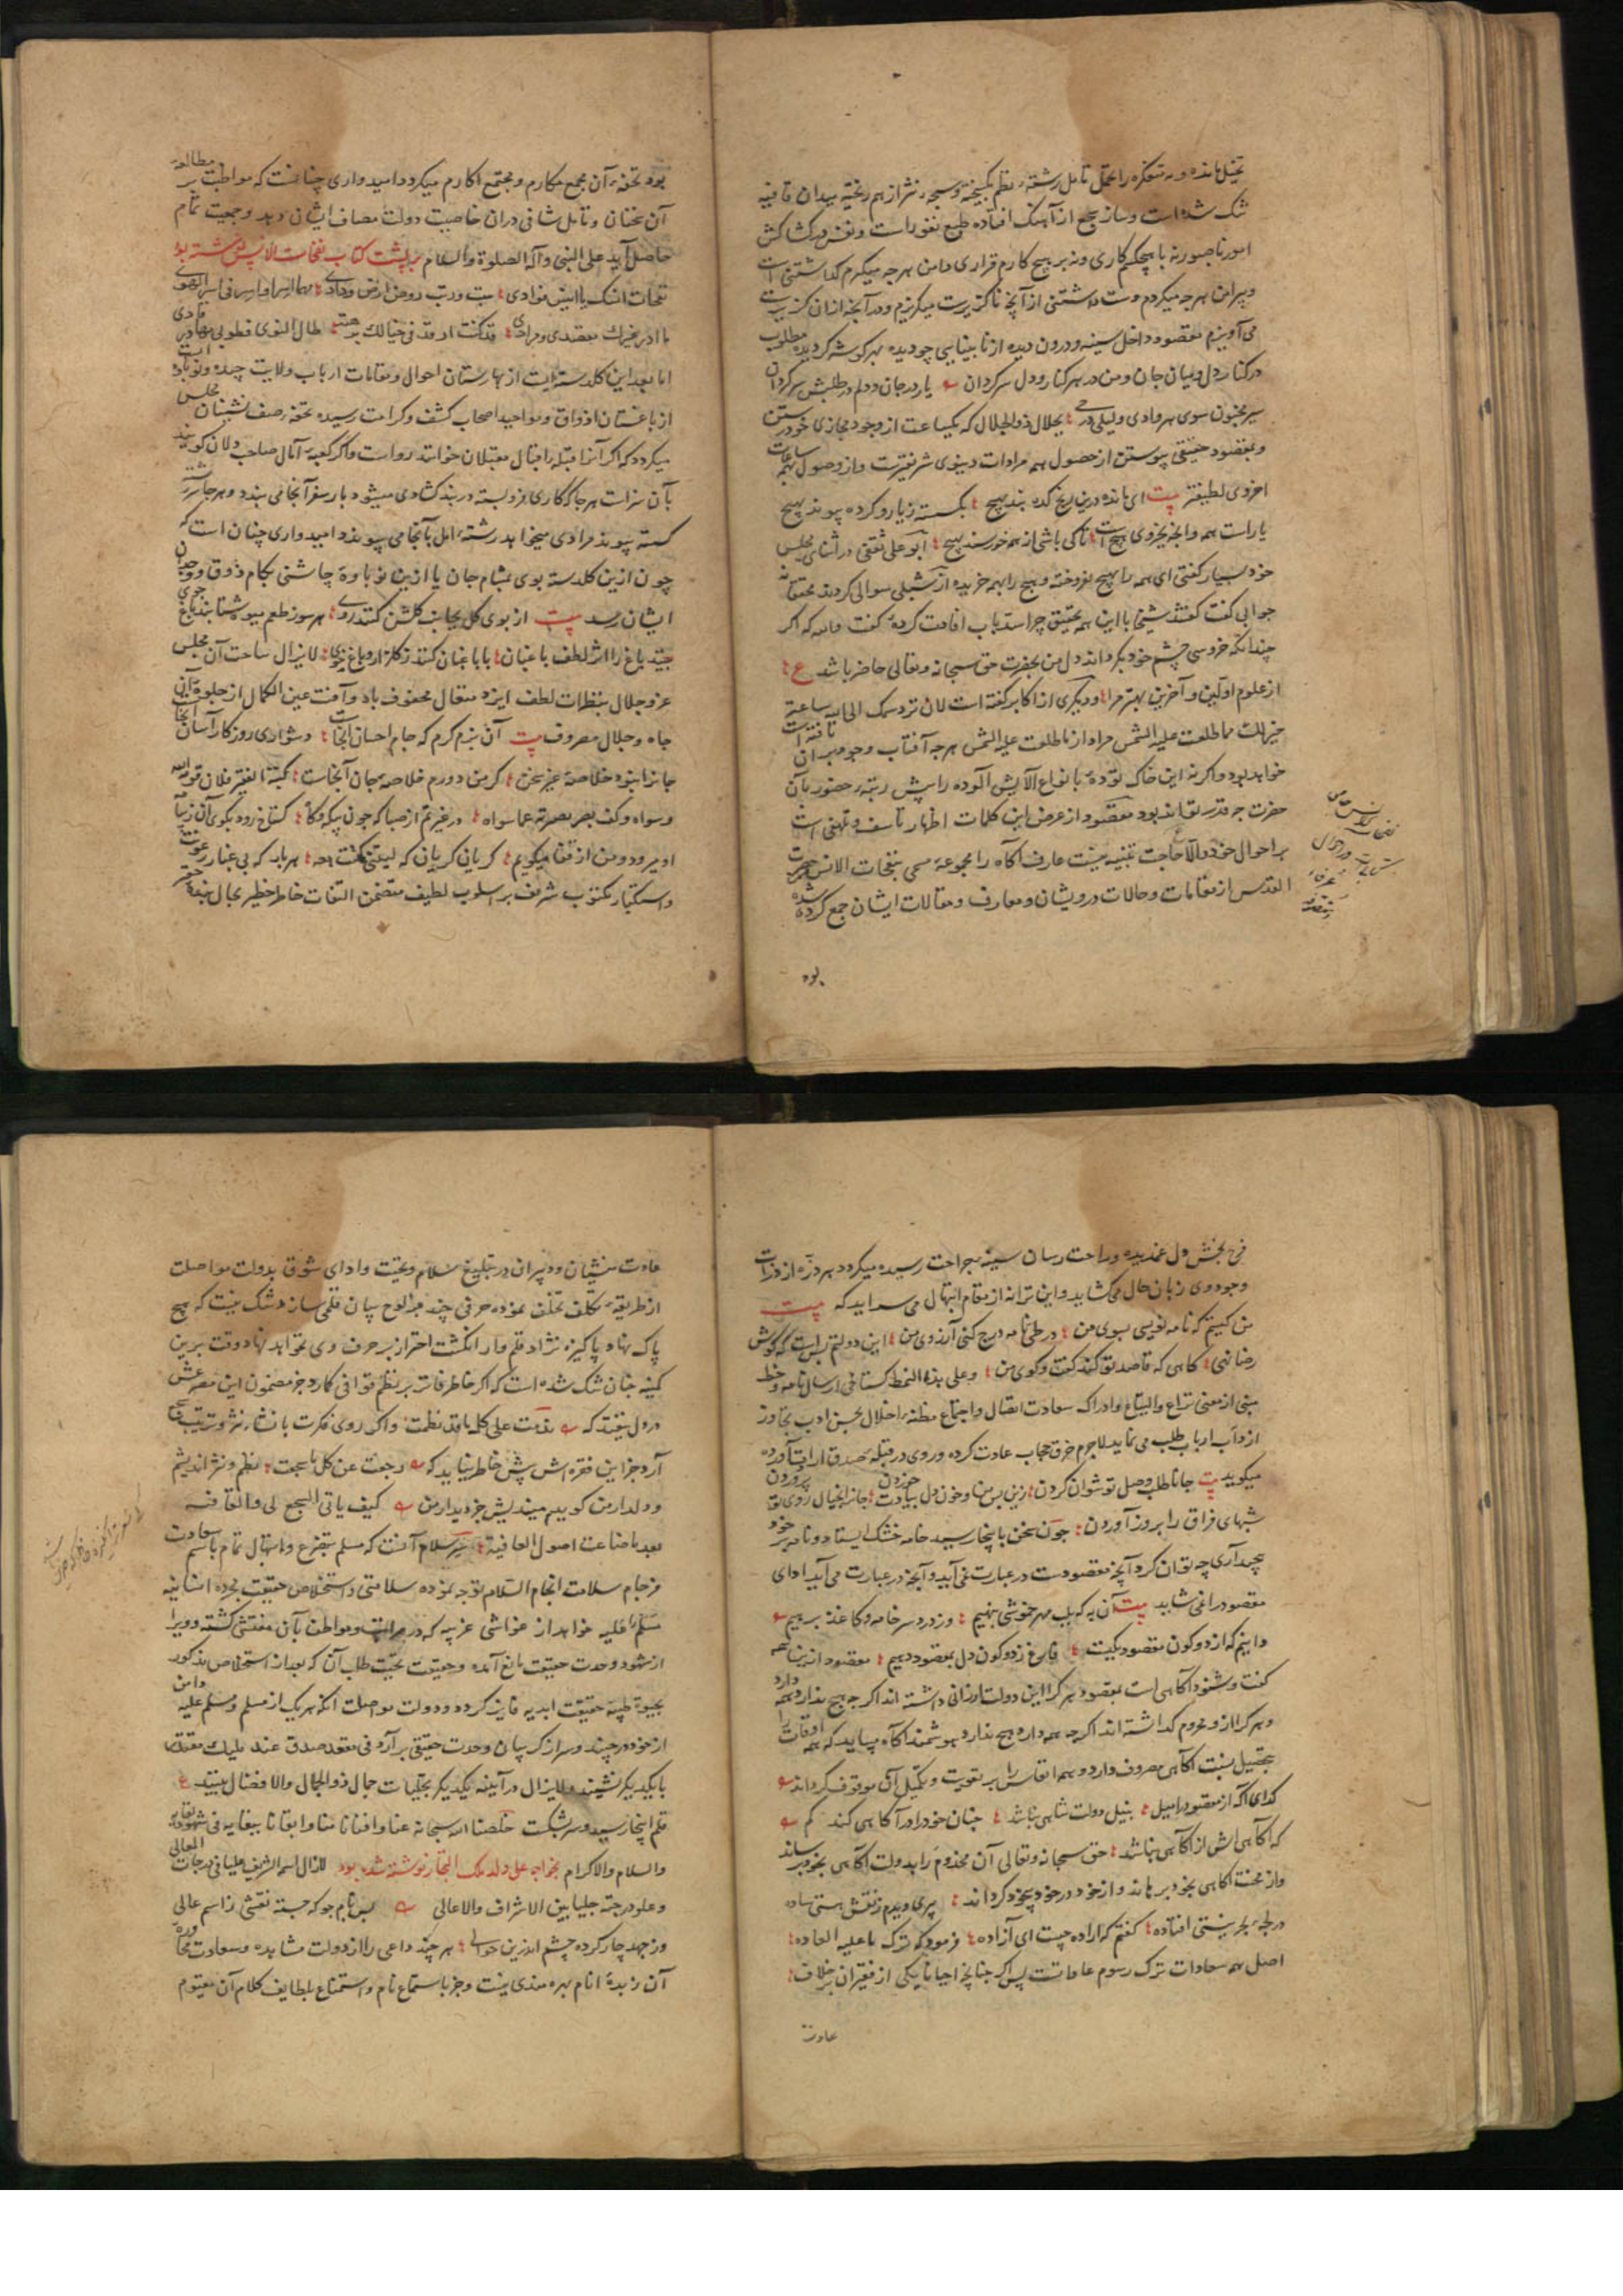 تخیل مانده و نه متفکره را مجال تامل رشتهٔ نظم گسیخته و سجهٔ نثر از هم ریخته میدان قافیه
تنک شده است و ساز سجع از آهنک افتاده طبع نفور است و نفس در کشاکش
امور ناصبور نه با هیچکسم کاری و نه بر هیچ کارم قراری دامن هر چه میگیرم گذاشتنی است
و پیرامن هر چه میگردم دست داشتنی از آنچه ناگزیرست میگریزم و در آنچه ازان گزیرست
می آویزم مقصود داخل سینه و درون دیده از نابینایی چو دیده بهر گوشه گردیده مطلوب
در کنار دل و میان جان و من در هر کنار و دل سرگردان یار در جان و دلم در طلبش سرگردان
سیر مجنون سوی هر وادی و لیلی در حی بجلال ذو الجلال که یکساعت از وجود مجازی خود رستن
و بمقصود حقیقی پیوستن از حصول همه مرادات دنیوی شریفترست و از وصول بهمه سعادات
اخروی لطیفتر بیت ای مانده درین ریخ کده بند بهیچ بگسسته ز یار و کرده پیوند بهیچ
یارست همه و آنچه بجز وی هیچ است تا کی باشی از همه خورسند بهیچ ابو علی ثقفی در اثنای مجلس
خود بسیار گفتی ای همه را بهیچ فروخته و هیچ را بهمه خریده از شبلی سوالی کردند محققانه
جوابی گفت گفتند شیخا با این همه تحقیق چرا سد باب افادت کردهٔ گفت والله که اگر
چندانکه خروسی چشم خود بگرداند دل من بحضرت حق سبحانه و تعالی حاضر باشد ع
از علوم اولین و آخرین بهتر مرا و دیگری از اکابر گفته است لان ترد همک الی الله ساعة
خیر لک مما طلعت علیه الشمس مراد از ما طلعت علیه الشمس هر چه آفتاب وجود بر آن تافته است
خواهد بود و اگر نه این خاک تودهٔ بانواع آلایش آلوده را پیش رتبهٔ حضور بآن
حضرت چه قدر تواند بود مقصود از عرض این کلمات اظهار تاسف و تلهفی است
بر احوال خود والا حاجت تنبیه نیست عارف آکاه را مجموعهٔ مسمی بنفحات الانس من حضرات
القدس از مقامات و حالات درویشان و معارف و مقالات ایشان جمع کرده شده
بود
بود تحفهٔ آن مجمع مکارم و مجتمع اکارم میگردد امیدواری چنانست که مواظبت بر مطالعه
آن سخنان و تامل شافی دران خاصیت دولت مصاف ایشان دهد و جمعیت تمام
حاصل آید علی النبی و آله الصلوة والسلام بر پشت کتاب نفحات الانس نوشته بود
اما بعد این کلدسته ایست از بهارستان احوال و مقامات ارباب ولایت چیده و نوباوه ایست
از باغستان اذواق و مواجید اصحاب کشف و کرامت رسیده تحفهٔ صف نشینان مجلس
میگردد که اگر آنرا قبلهٔ اقبال مقبلان خوانند رواست و اگر کعبهٔ آمال صاحب دلان گویند
بآن سزاست هر جا که کاری فرو بسته در بند گشادی میشود بار سفر آنجا می بندد و هر جا رشتهٔ
کسسته پیوند مرادی میخواهد رشتهٔ امل بآنجا می پیوندد امیدواری چنان است که
چون ازین کلدسته بوی بمشام جان یا ازین نوباوه چاشنی بکام ذوق و وجدان
ایشان رسد بیت از بوی گل بجانب گلشن کنند روی هر سوز طعم میوه شتابند باغ جوی
بینند باغ را اثر لطف باغبان با باغبان کنند ز گلزار و باغ خوی لا یزال ساحت آن مجلس
عز و جلال بنظرات لطف ایزد متعال محفوف باد و آفت عین الکمال از جلوه گاه آن
جاه و جلال مصروف بیت آن بزم کرم که جام احسان آنجاست دشواری روزگار آسان آنجاست
جانرا نبود خلاصهٔ غیر سخن گر من دورم خلاصهٔ جان آنجاست کتبه الفقیر فلان قومه الله
و سواه و کف بصر بصیرته عما سواه در غیرتم از صبا که چون پیک و کتاب کستاخ رود بکوی آن زیبا
او میرود و من از قفا میگویم گریان گریان که لیتنی کنت معه هر بار که بی غبار رعونت
و استکبار مکتوب شریف بر اسلوب لطیف متضمن التفات خاطر خطیر بحال بندهٔ حقیر
فرح بخش دل غمدیده و راحت رسان سینهٔ جراحت رسیده میگردد هر ذره از ذرات
وجود وی زبان حال می کشاید و این ترانه از مقام ابتهال می سراید که بیت
من کیستم که نامه نویسی بسوی من در طی نامه درج کنی آرزوی من این دولتم بس است که گوش
رضا نهی گاهی که قاصد تو کند گفت و گوی من و علی هذا النمط گستاخی ارسال نامه و خط
مبنی از معنی نزاع و التیاع و ادراک سعادت اتصال و اجتماع مظنهٔ اخلال بحسن ادب تجاوز
از داب ارباب طلب می نماید لاجرم خرق حجاب عادت کرده و روی در قبلهٔ صدق ارادت آورده
میگوید بیت جانا طلب وصل تو نتوان کردن زین بس من و خون دل بیادت خوردن جانرا بخیال روی تو پروردن
شبهای فراق را بروز آوردن چون سخن باینجا رسید خامه خشک ایستاد و نامه بر خود
پیچید آری چه توان کرد آنچه مقصودست در عبارت نمی آید و آنچه در عبارت می آید ادای
مقصود را نمی شاید بیت آن به که بلب مهر خموشی بنهیم وز درد سر خامه و کاغذ برهیم
دانیم که از دو کون مقصود یکیست فارغ ز دو کون دل بمقصود دهیم مقصود ازین همه
گفت و شنود آکاهی است بمقصود هر کرا این دولت ارزانی داشته اند اگر چه هیچ ندارد همه دارد
و هر کرا از و محروم گذاشته اند اگر چه همه دارد هیچ ندارد هوشمند آکاه میباید که همه اوقات را
بتحصیل نسبت آکاهی مصروف دارد و همه انفاس را بر تقویت و تکمیل آن موقوف گرداند
گدای آکه از مقصود را میل بنیل دولت شاهی نباشد چنان خود را در آکاهی کند گم
که آکاهی اش از آکاهی نباشد حق سبحانه و تعالی آن مخدوم را بدولت آکاهی بخود برساند
و از محنت آکاهی بخود برهاند و از خود در خود بیخود گرداند پیری دیدم ز نقش هستی ساده
در لجهٔ بحر نیستی افتاده گفتم که اراده چیست ای آزاده فرمود که ترک ما علیه العاده
اصل همه سعادات ترک رسوم عاداتست پس اگر چنانچه احیانا یکی از فقیران بر خلاف
عادت
عادت منشیان و دبیران در تبلیغ سلام و تحیت و ادای شوق بدولت مواصلت
از طریقهٔ تکلف تخلف نموده حرفی چند بر لوح بیان قلمی سازد شک نیست که هیچ
پاک نهاد پاکیزه نژاد قلم وار انگشت احتراز بر حرف وی نخواهد نهاد وقت برین
کمینه چنان تنک شده است که اگر خاطر فاتر بر نظم قوافی گمارد جز مضمون این مصرعش
در دل نیفتد که ندمت علی کل ما قد نظمت و اگر روی فکرت بانشاء نثر و ترتیب سجع
آرد جز این فقره اش پیش خاطر نیاید که رجعت عن کل ما سجعت نظم و نثر اندیشم
و دلدار من گویدم میندیش جز دیدار من کیف یاتی السجع لی والقافیه
بعد ما ضاعت اصول العافیة سر سلام آنست که مسلم بتضرع و ابتهال تمام باسم سعادت
فرجام سلامت انجام السلام توجه نموده سلامتی و استخلاص حقیقت مجرده انسانیه
مسلم علیه خواهد از غواشی غریبه که در مراتب و مواطن بآن مغشی گشته و ویرا
از شهود وحدت حقیقت مانع آمده و حقیقت تحیت طلب آن که بعد از استخلاص مذکور
بحیوة طیبه حقیقت ابدیه فایز گردد و دولت مواصلت آنکه هر یک از مسلم و مسلم علیه دامن
از خود در چیند و سر از گریبان وحدت حقیقی بر آرد فی مقعد صدق عند ملیک مقتدر
با یکدیگر نشینند و لایزال در آیینه یکدیگر تجلیات جمال ذو الجلال والافضال بینند ع
قلم اینجا رسید و سر بشکست خلصنا الله سبحانه عنا و افنانا منا و ابقانا ببقایه فی شهود لقایه
والسلام والاکرام بخواجه علی ولد ملک التجار نوشته شده بود لازال اسمه الشریف علیا فی درجات المعالی
و علو درجته جلیا بین الاشراف والاعالی بس نام جو که جسته نقشی ز اسم عالی
وز جهد چار کرده چشم اندرین حوالی هر چند داعی را از دولت مشاهده و سعادت محاوره
آن زبدهٔ انام بهره مندی نیست و جز باستماع نام و استمتاع بلطایف کلام آن مقیم